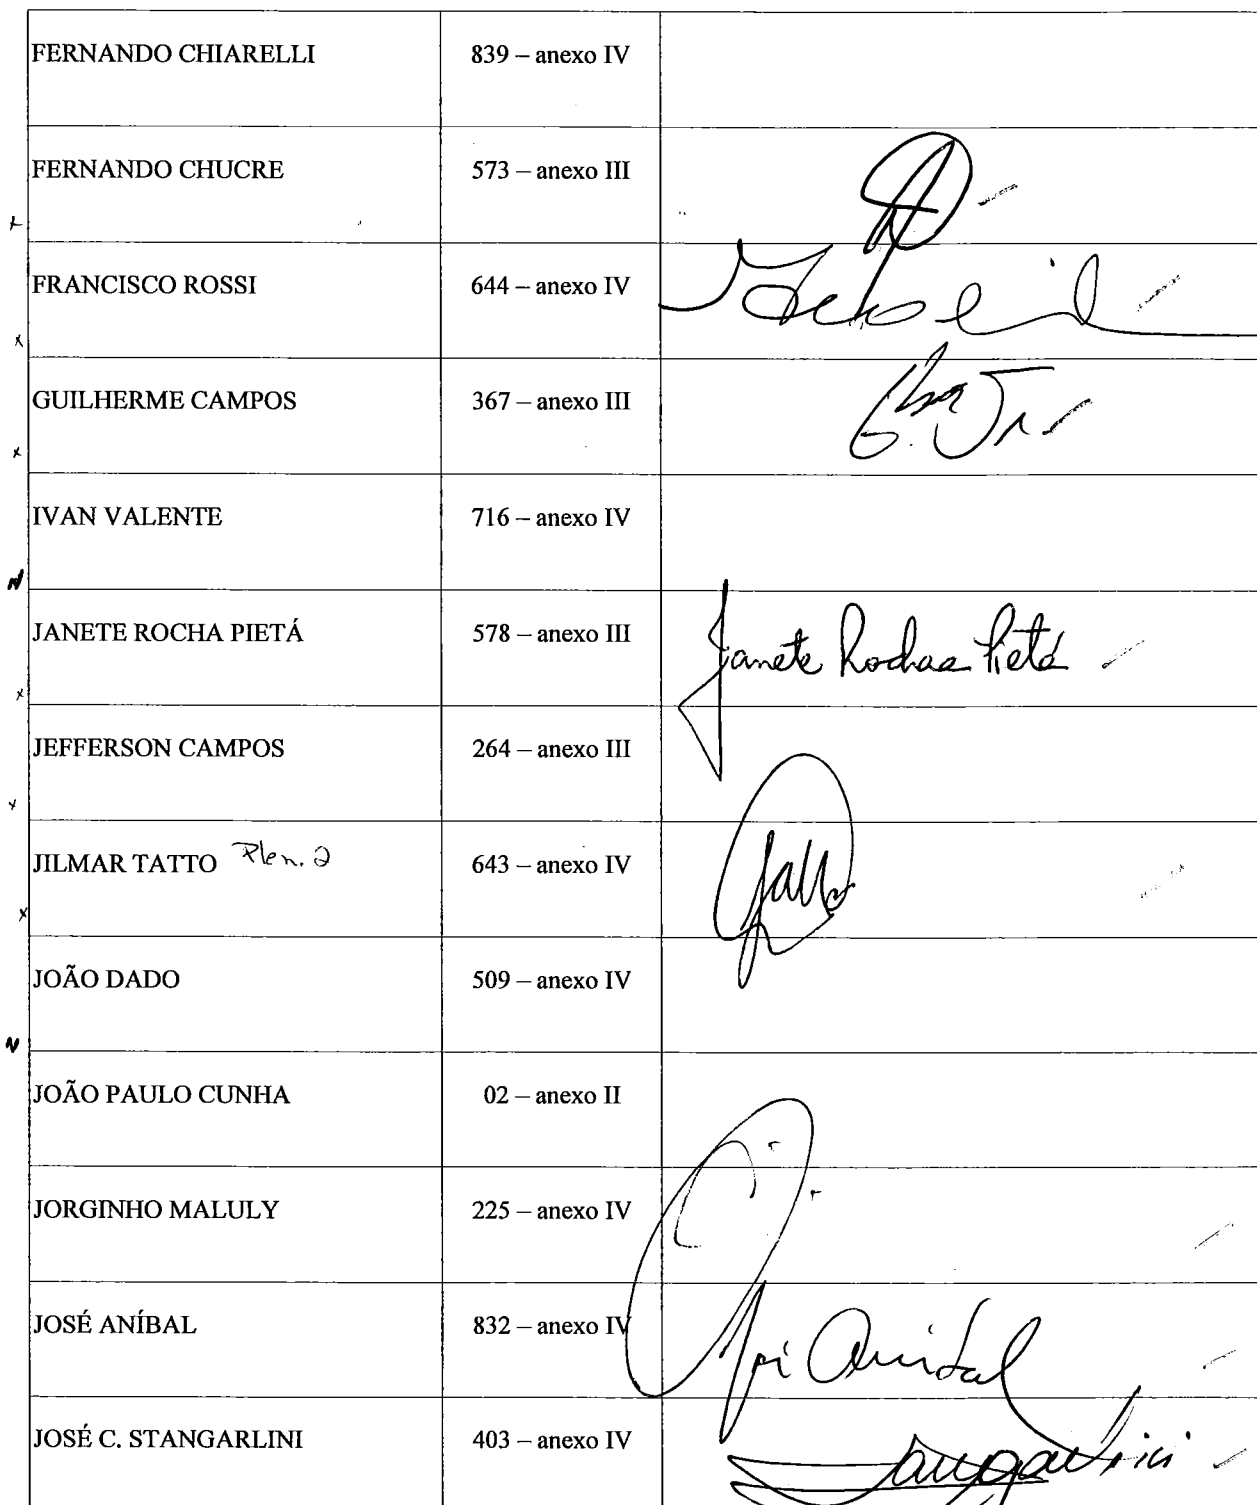 FERNANDO CHIARELLI 839 – anexo IV
FERNANDO CHUCRE 573 – anexo III
x
FRANCISCO ROSSI 644 – anexo IV
x
GUILHERME CAMPOS 367 – anexo III
x
IVAN VALENTE 716 – anexo IV
N
JANETE ROCHA PIETÁ 578 – anexo III Janete Rocha Pietá
x
JEFFERSON CAMPOS 264 – anexo III
x
JILMAR TATTO Plen. 2 643 – anexo IV
x
JOÃO DADO 509 – anexo IV
N
JOÃO PAULO CUNHA 02 – anexo II
JORGINHO MALULY 225 – anexo IV
JOSÉ ANÍBAL 832 – anexo IV
JOSÉ C. STANGARLINI 403 – anexo IV